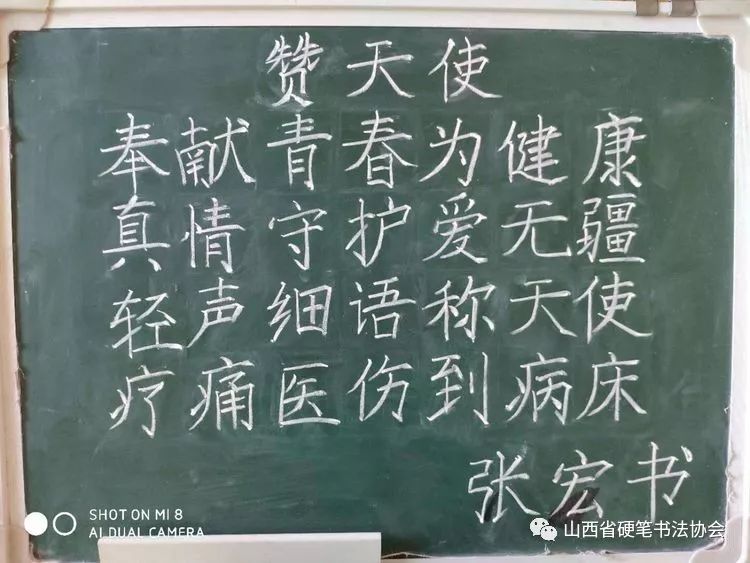 赞天使
奉献青春为健康
真情守护爱无疆
轻声细语称天使
疗痛医伤到病床
张宏书
SHOT ON MI 8
AI DUAL CAMERA
山西省硬笔书法协会